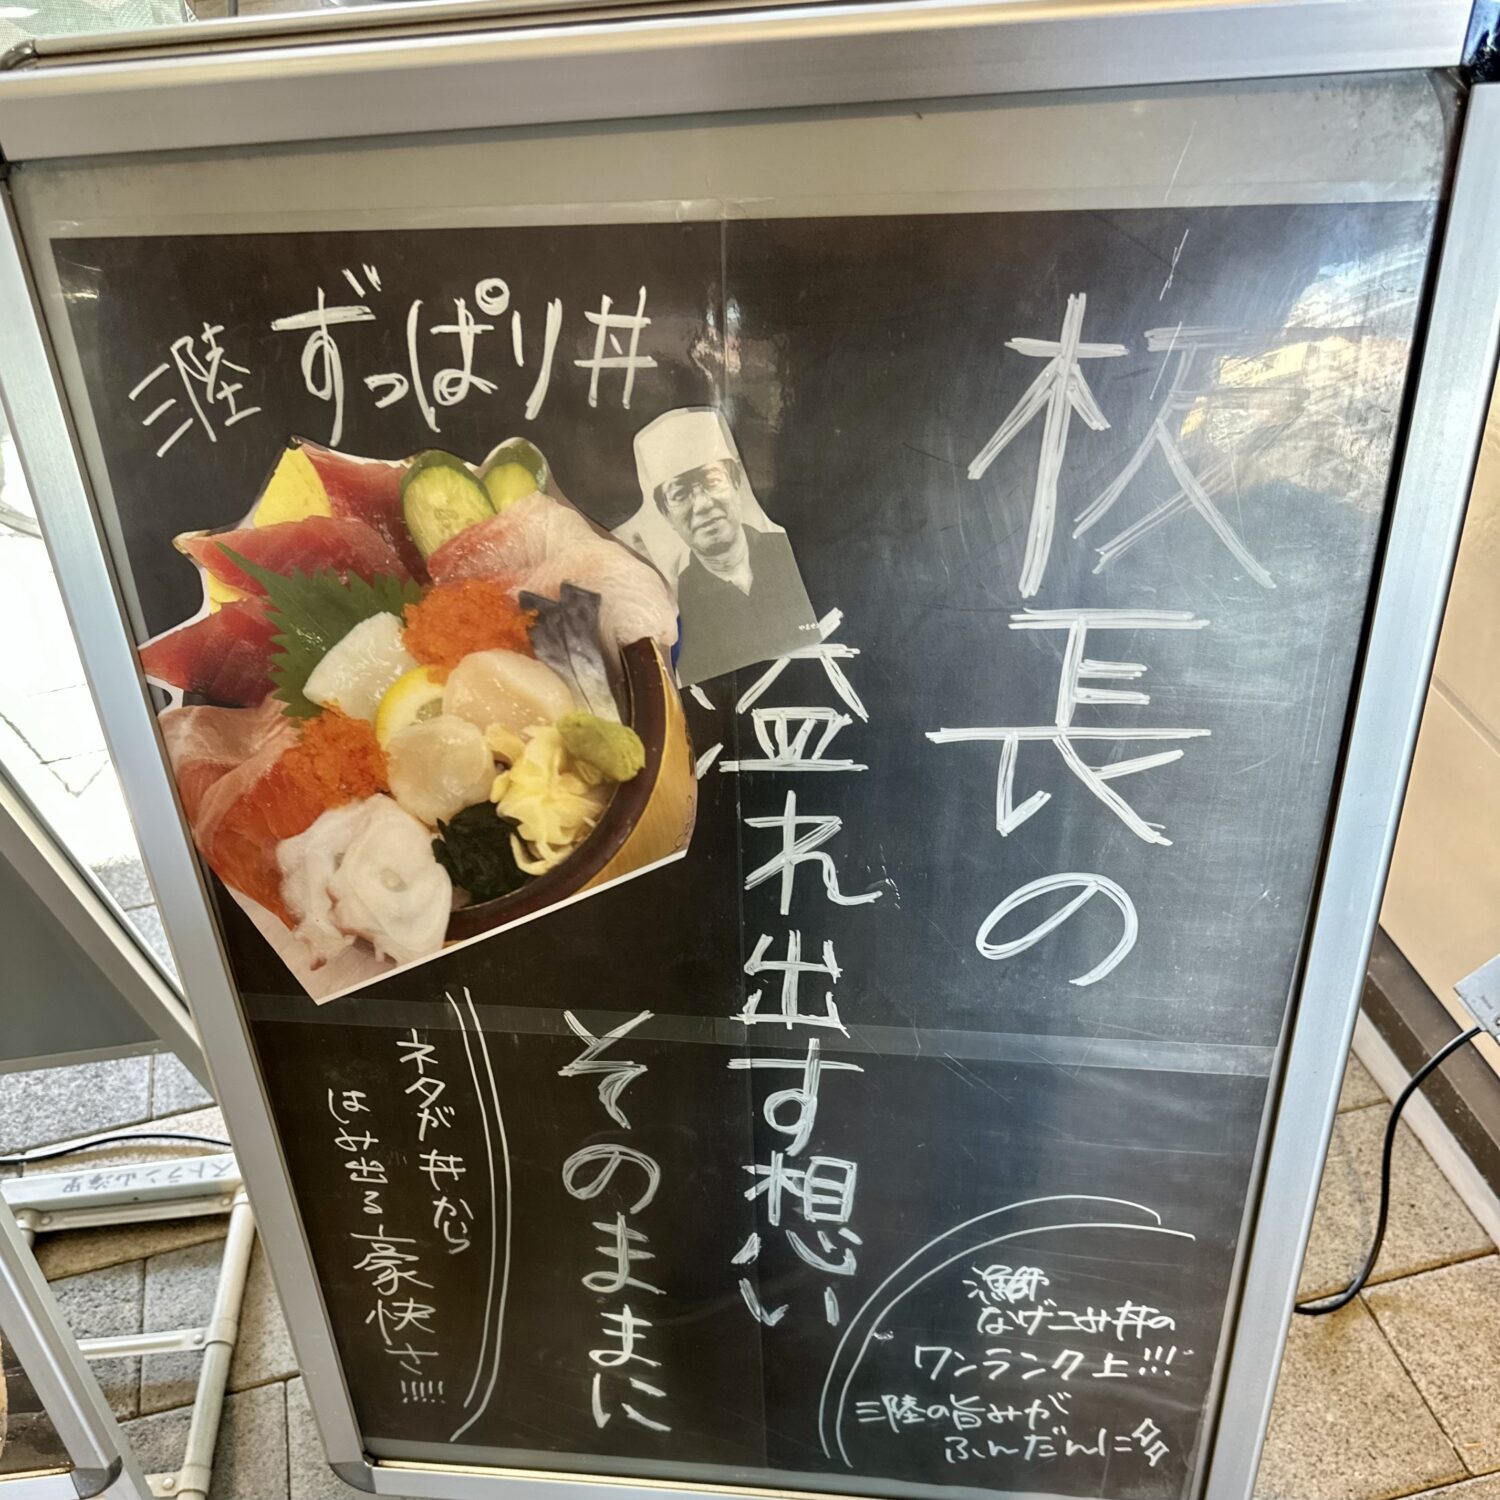 三陸 ずっぱり丼
板長の
溢れ出す想い
そのままに
ネタが丼から
はみ出る豪快さ!!!!!
漁師
なげこみ丼の
ワンランク上!!!
三陸の旨みが
ふんだんに